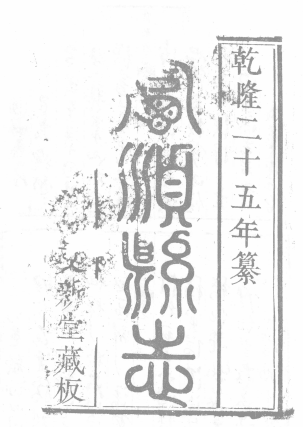 乾隆二十五年纂
富順縣志
新堂藏板